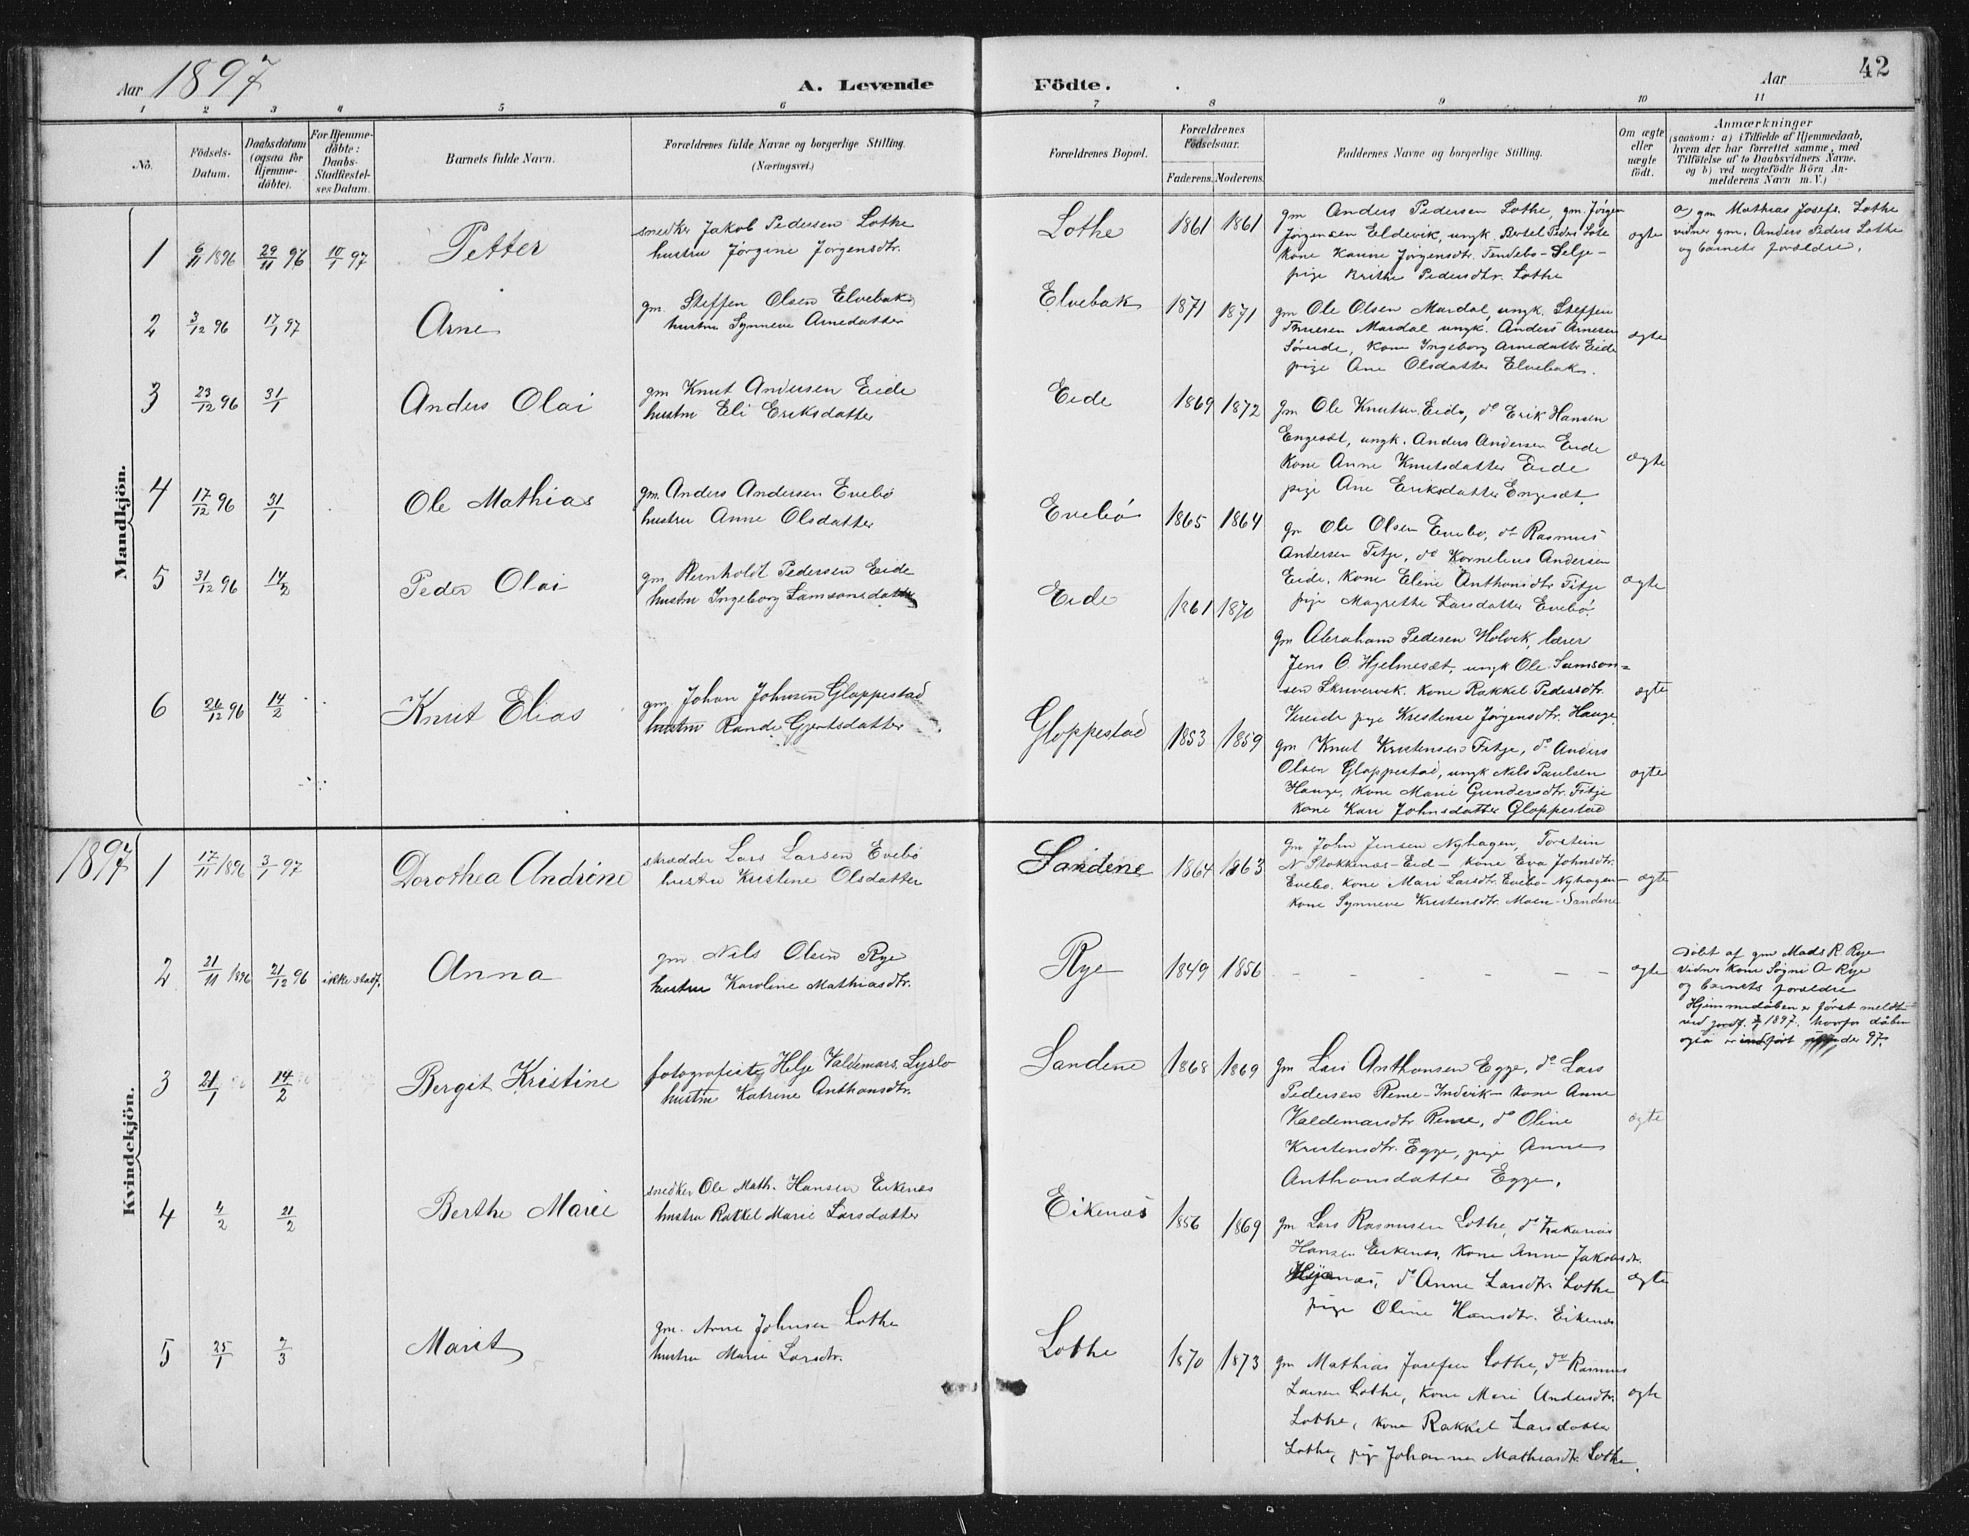 Aar 1897
A. Levende Födte.
Aar
42
1 2 3 4 5 6 7 8 9 10 11
No.
Födsels-Datum.
Daabsdatum (ogsaa for Hjemmedöbte).
For Hjemmedöbte: Daabs-Stadfæstelses Datum.
Barnets fulde Navn.
Forældrenes fulde Navne og borgerlige Stilling. (Næringsvei.)
Forældrenes Bopæl.
Forældrenes Födselsaar.
Faderens. Moderens.
Faddernes Navne og borgerlige Stilling.
Om ægte eller uægte födt.
Anmærkninger
(saasom: a) i Tilfælde af Hjemmedaab,
hvem der har forrettet samme, med
Tilföielse af to Daabsvidners Navne,
og b) ved uægtefödte Börn Anmelderens Navn m. V.)
Mandkjön.
1 6/11 1896 29/11 96 10/1 97 Petter
snedker Jakob Pedersen Lothe
hustru Jörgine Jörgensdtr.
Lothe 1861 1861
gm Anders Pedersen Lothe, gm. Jörgen
Jörgensen Eldevik, ungk. Bertel Peders Lote
kone Kanne Jörgensdtr. Tendebö-Selje-
pige Brithe Pedersdtr. Lothe
ægte
a) gm Mathias Josefs. Lothe
vidner gm. Anders Peders Lothe
og barnets forældre.
2 3/12 96 17/1 97 Arne
gm. Steffen Olsen Elvebak
hustru Synneve Arnedatter
Elvebak 1871 1871
gm Ole Olsen Mardal, ungk. Steffen
Mardal ungk. Anders Arnesen
Söreide, kone Ingeborg Arnedatter Eide
pige Ane Olsdatter Elvebak.
ægte
3 23/12 96 31/1 Anders Olai
gm Knut Andersen Eide
hustru Eli Eriksdatter
Eide 1869 1872
gm Ole Knutsen Eide, do Erik Hansen
Engesæt, ungk. Anders Andersen Eide
kone Anne Knutsdatter Eide
pige Ane Eriksdatter Engesæt
ægte
4 17/12 96 31/1 Ole Mathias
gm Anders Andersen Evebö
hustru Anne Olsdatter
Evebö 1865 1864
gm Ole Olsen Evebö, do Rasmus
Andersen Fitje, do Kornelius Andersen
Eide, kone Eline Anthonsdtr Fitje
pige Magrethe Larsdatter Evebö.
ægte
5 31/12 96 14/2 Peder Olai
gm Bernholdt Pedersen Eide
hustru Ingeborg Samsonsdatter
Eide 1861 1870
gm Abraham Pedersen Holvik, lærer
Jens O. Hjelmesæt, ungk Ole Samson-
sen Skrivervik. kone Rakkel Pedersdtr.
Vereide pige Kristense Jörgensdtr. Hauge
ægte
6 26/12 96 14/2 Knut Elias
gm Johan Johnsen Gloppestad
hustru Rande Gjertsdatter
Gloppestad 1853 1859
gm Knut Kristensen Fitje, do Anders
Olsen Gloppestad, ungk Nils Paulsen
Hauge, kone Marie Gundersdtr. Fitje
kone Kari Johnsdatter Gloppestad
ægte
1897
Kvindekjön.
1 17/11 1896 3/1 97 Dorothea Andrine
skrædder Lars Larsen Evebö
hustru Kristine Olsdatter
Sandene 1864 1863
gm John Jensen Nyhagen, Torstein
N Stokkenæs-Eid- kone Eva Johnsdtr.
Evebö. kone Mari Larsdtr. Evebö-Nyhagen-
kone Synneve Kristensdtr. Moen-Sandene
ægte
2 21/11 1896 21/12 96 ikke stadf. Anna
gm Nils Olsen Rye
hustru Karoline Mathiasdtr.
Rye 1849 1856
- - - - - -
ægte
Döbt af gm Mads R. Rye
Vidner kone Sögni A Rye
og barnets forældre
Hjemmedåben er först meldt
ved 1897. hvorfor dåben
også er indfört under 97.
3 21/1 14/2 Bergit Kristine
fotografist Helje Valdemars. Lyslo
hustru Katrine Anthonsdtr.
Sandene 1868 1869
gm Lars Anthonsen Egge, do Lars
Pedersen Reme-Indvik- kone Anne
Valdemarsdtr Reme, do Oline
Kristensdtr. Egge, pige Anne
Anthonsdatter Egge.
ægte
4 4/2 21/2 Berthe Marie
snedker Ole Math. Hansen Eikenæs
hustru Rakkel Marie Larsdatter
Eikenæs 1856 1869
gm Lars Rasmusen Lothe, do Zakarias
Hansen Eikenæs, kone Anne Jakobsdtr.
do Anne Larsdtr. Lothe
pige Oline Hansdtr. Eikenæs
ægte
5 25/1 7/3 Marit
gm. Arne Johnsen Lothe
hustru Marie Larsdtr.
Lothe 1870 1873
gm Mathias Josefsen Lothe, do Rasmus
Larsen Lothe, kone Mari Andersdtr.
Lothe, kone Rakkel Larsdatter
Lothe, pige Johanne Mathiasdtr. Lothe.
ægte